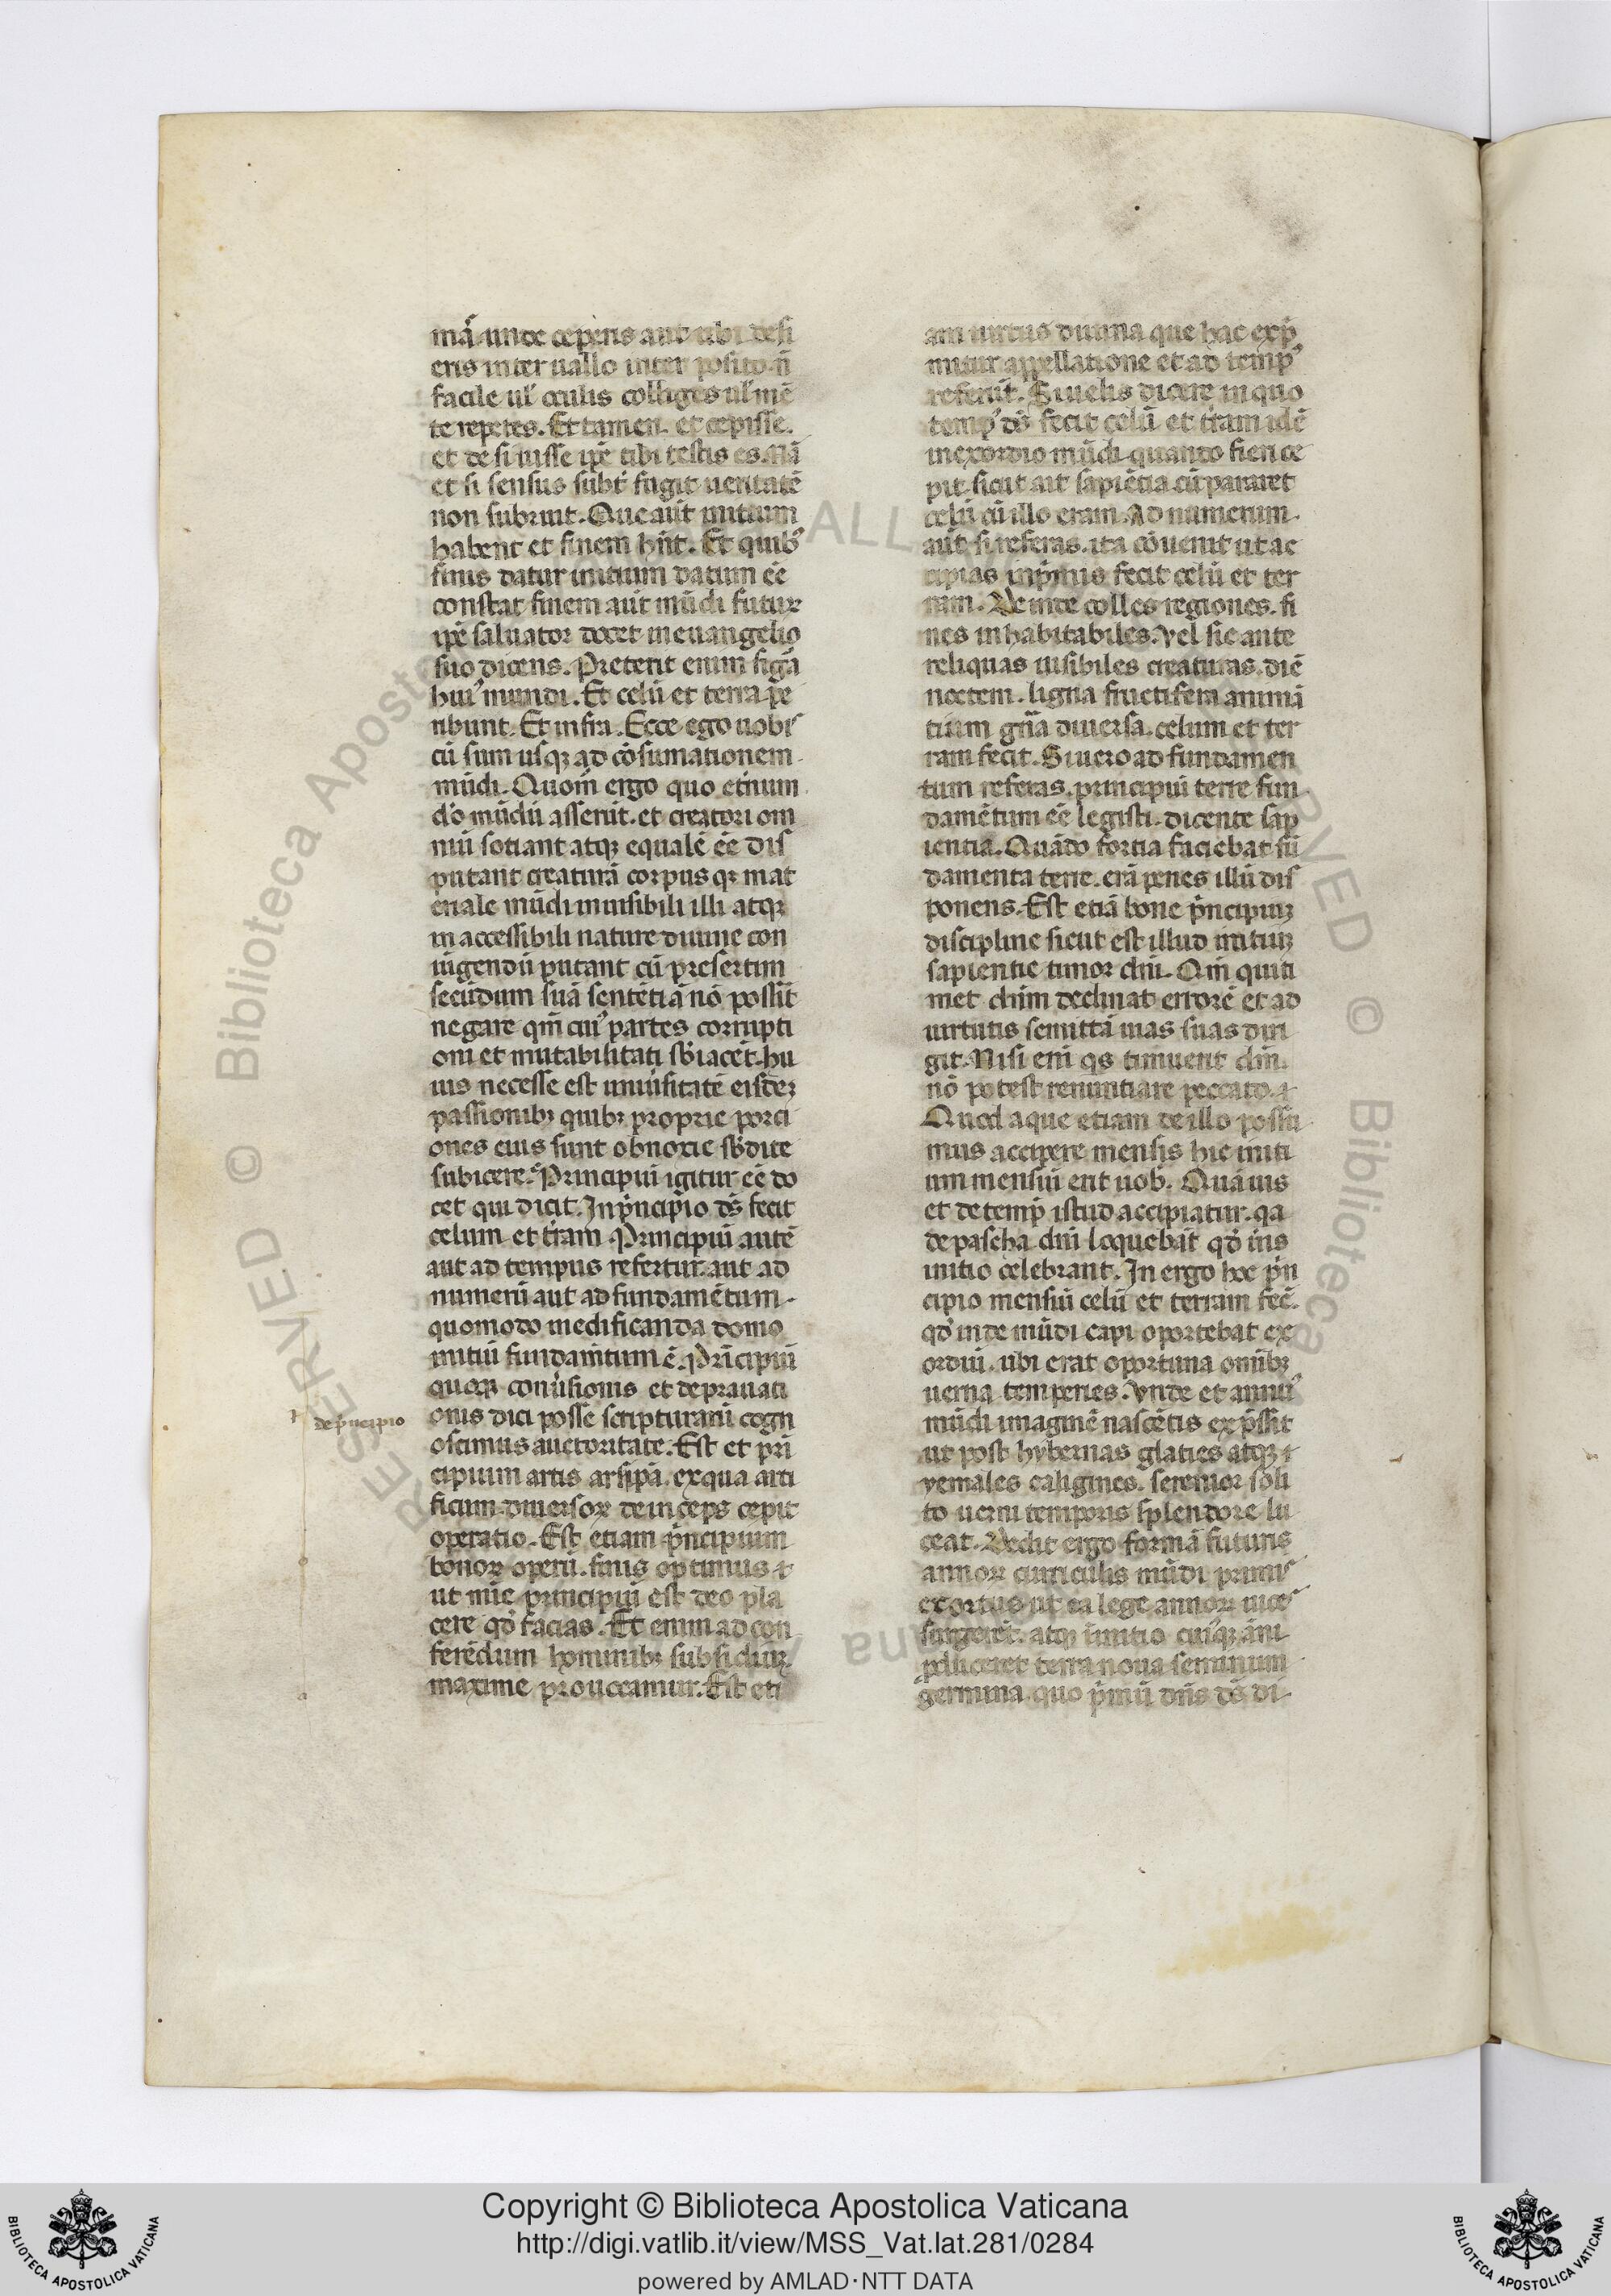 mā. unde ceperis aut ubi desi
eris inter uallo inter posito. n̄
facile ul' oculis colliges ul' mē
te reperies. Et tamen. et cepisse.
et de siuisse ip̄e tibi testis es. Nā
et si sensus subt' fugit ueritatē
non subruit. Que aūt initium
habent et finem hn̄t. Et quib'
finis datur initium datum ēe
constat finem aūt mūdi futurꝝ
ip̄e saluator docet in euangelio
suo dicens. Preterit enim figā
hui' mundi. Et celū et terra pe
ribunt. Et infra. Ecce ego uobis
cū sum usqꝫ ad cōsumationem
mūdi. Quom̄ ergo quo et̄num
d'o mūdū asserūt. et creatori om
niū sotiant atqꝫ equalē ēe dis
putant creaturā corpus qꝫ mat
eriale mūdi inuisibili illi atqꝫ
in accessibili nature diuine con
iūgendū putant cū presertim
secūdum suā sentētiā nō possīt
negare qm̄ cui' partes corrupti
oni et mutabilitati sb̄iacēt. hu
ius necesse est uniūsitatē eisdeꝫ
passionibꝫ quibꝫ proprie porci
ones eius sunt obnoxie sb̄dite
subicere. Principiū igitur ēe do
cet qui dicit. In p̄ncipio d̄s fecit
celum et t'ram Principiū autē
aut ad tempus refertur. aut ad
numerū aut ad fundamētum.
quomodo in edificanda domo
initiū fundam̄tum ē. Prīcipiū
quoqꝫ conūsionis et deprauati
onis dici posse scripturarū cogn
oscimus auctoritate. Est et pri
cipium artis ars ip̄a. ex qua arti
ficum diuersoꝝ deinceps cepit
operatio. Est etiam p̄ncipium
bonoꝝ operū. finis optimus ⁊
ut mīe principiū est deo pla
cere qd̄ facias. Et enim ad con
ferēdum hominibꝫ subsidiūꝫ
maxime prouocamur. Est eti
de p̄ncipio
am uirtus diuina que hac exp̄
mitur appellatione et ad temp'
referūt. Si uelis dicere in quo
temp' d̄s fecit celū et t'ram idē
in exordio mūdi quando fieri ce
pit. sicut ait sapiētia cū pararet
celū cū illo eram. Ad numerum.
aūt si referas. ita cōuenit ut ac
cipias inp̄mis fecit celū et ter
ram. Deinde colles regiones. fi
nes inhabitabiles. Vel sic ante
reliquas uisibiles creaturas. diē
noctem. ligna fructifera animā
tium gn̄a diuersa. celum et ter
ram fecit. Si uero ad fundamen
tum referas. principiū terre fun
damētum ēe legisti. dicente sap
ientia. Quādo fortia faciebat fū
damenta terre. erā penes illū dis
ponens. Est etiā bone p̄ncipiuꝫ
discipline sicut est illud initiuꝫ
sapientie timor dn̄i. Qm̄ qui ti
met dn̄m declinat errorē et ad
uirtutis semittā uias suas diri
git. Nisi eni qs timuerit dn̄m.
nō potest renuntiare peccato. ⁊
Quod aque etiam de illo possu
mus accipere mensis hic initi
um mensiū erit uob. Quāuis
et de temp̄ istud accipiatur. qa
de pascha dn̄i loquebat̄ qd̄ ūis
initio celebrant. In ergo hoc p̄n
cipio mensiū celū et terram fec̄.
qd' inde mūdi capi oportebat ex
ordiū. ubi erat oportuna omībꝫ
uerna temperies. Vnde et annu'
mūdi imaginē nascētis exp̄ssit
ut post hybernas glaties atqꝫ ⁊
yemales caligines. serenior soli
to uerni temporis splendore lu
ceat. Dedit ergo formā futuris
annoꝝ curriculis mūdi primus
exortus ut ea lege annoꝝ uices
surgerēt. atqꝫ initio cuiqꝫ āni
ꝓduceret terra noua seminum
germina. quo p̄mū dn̄s d̄s di
Copyright © Biblioteca Apostolica Vaticana
http://digi.vatlib.it/view/MSS_Vat.lat.281/0284
powered by AMLAD·NTT DATA